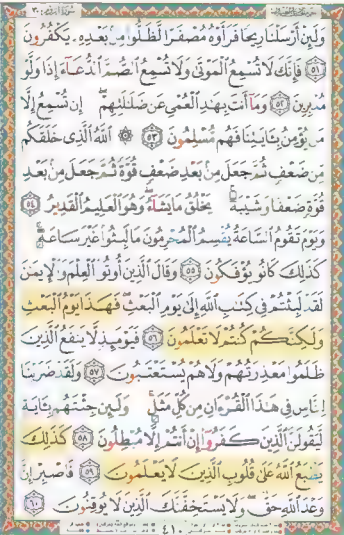 وَلَئِنْ أَرْسَلْنَا رِيحًا فَرَأَوْهُ مُصْفَرًّا لَّظَلُّوا مِن بَعْدِهِ يَكْفُرُونَ
﴿٥١﴾ فَإِنَّكَ لَا تُسْمِعُ الْمَوْتَىٰ وَلَا تُسْمِعُ الصُّمَّ الدُّعَاءَ إِذَا وَلَّوْا
مُدْبِرِينَ ﴿٥٢﴾ وَمَا أَنتَ بِهَادِ الْعُمْيِ عَن ضَلَالَتِهِمْ إِن تُسْمِعُ إِلَّا
مَن يُؤْمِنُ بِآيَاتِنَا فَهُم مُّسْلِمُونَ ﴿٥٣﴾ ۞ اللَّهُ الَّذِي خَلَقَكُم
مِّن ضَعْفٍ ثُمَّ جَعَلَ مِن بَعْدِ ضَعْفٍ قُوَّةً ثُمَّ جَعَلَ مِن بَعْدِ
قُوَّةٍ ضَعْفًا وَشَيْبَةً يَخْلُقُ مَا يَشَاءُ وَهُوَ الْعَلِيمُ الْقَدِيرُ ﴿٥٤﴾
وَيَوْمَ تَقُومُ السَّاعَةُ يُقْسِمُ الْمُجْرِمُونَ مَا لَبِثُوا غَيْرَ سَاعَةٍ
كَذَٰلِكَ كَانُوا يُؤْفَكُونَ ﴿٥٥﴾ وَقَالَ الَّذِينَ أُوتُوا الْعِلْمَ وَالْإِيمَانَ
لَقَدْ لَبِثْتُمْ فِي كِتَابِ اللَّهِ إِلَىٰ يَوْمِ الْبَعْثِ فَهَٰذَا يَوْمُ الْبَعْثِ
وَلَٰكِنَّكُمْ كُنتُمْ لَا تَعْلَمُونَ ﴿٥٦﴾ فَيَوْمَئِذٍ لَّا يَنفَعُ الَّذِينَ
ظَلَمُوا مَعْذِرَتُهُمْ وَلَا هُمْ يُسْتَعْتَبُونَ ﴿٥٧﴾ وَلَقَدْ ضَرَبْنَا
لِلنَّاسِ فِي هَٰذَا الْقُرْآنِ مِن كُلِّ مَثَلٍ وَلَئِن جِئْتَهُم بِآيَةٍ
لَّيَقُولَنَّ الَّذِينَ كَفَرُوا إِنْ أَنتُمْ إِلَّا مُبْطِلُونَ ﴿٥٨﴾ كَذَٰلِكَ
يَطْبَعُ اللَّهُ عَلَىٰ قُلُوبِ الَّذِينَ لَا يَعْلَمُونَ ﴿٥٩﴾ فَاصْبِرْ إِنَّ
وَعْدَ اللَّهِ حَقٌّ وَلَا يَسْتَخِفَّنَّكَ الَّذِينَ لَا يُوقِنُونَ ﴿٦٠﴾
٤١٠